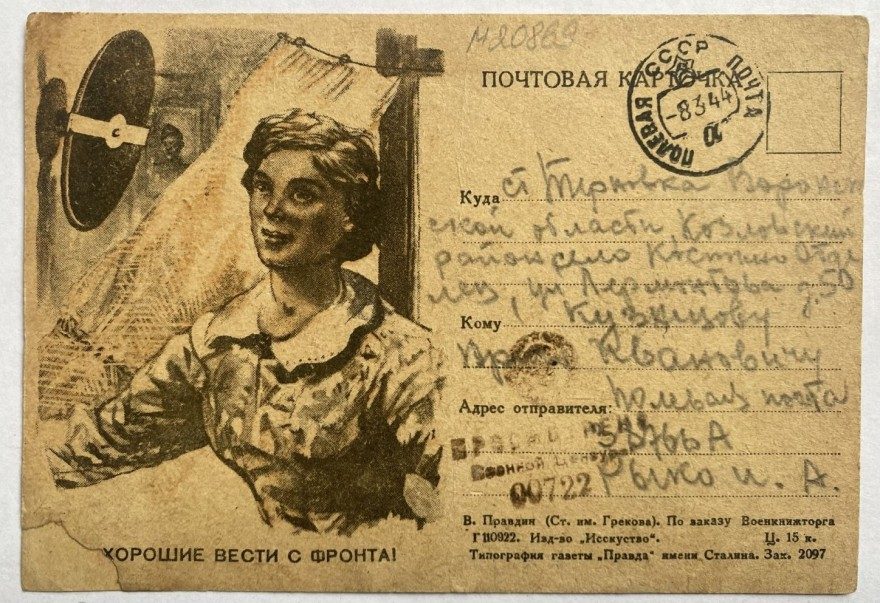 М20869
ПОЧТОВАЯ КАРТОЧКА
ПОЛЕВАЯ СССР ПОЧТА
-8344
Куда ст Терновка Воронеж
ской области Козловский
район село Костино Отде
лец, ул Лермонтова д. 50
Кому Кузнецову
Ивановичу
Адрес отправителя: Полевая почта
А
Рыко И. А.
Просмотрено
Военной Цензурой
00722
В. Правдин (Ст. им. Грекова). По заказу Военкнижторга
Г110922. Изд-во „Исскуство“. Ц. 15 к.
Типография газеты „Правда“ имени Сталина. Зак. 2097
ХОРОШИЕ ВЕСТИ С ФРОНТА!